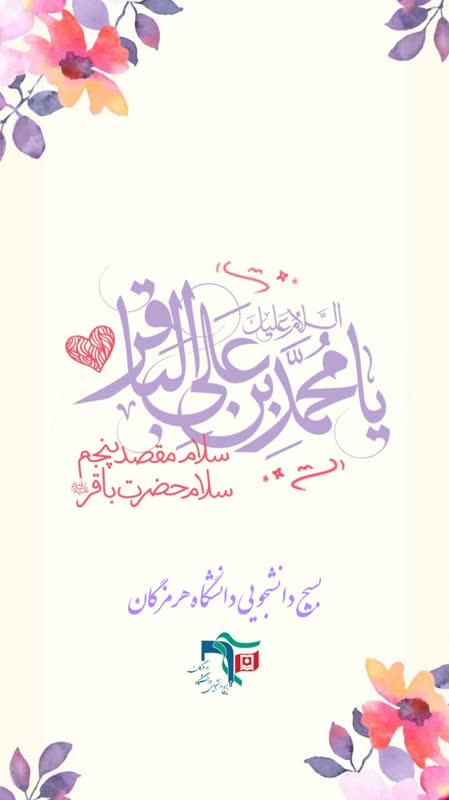 السلام علیک
یا محمد بن علی الباقر
سلام مقصد پنجم
سلام حضرت باقر
بسیج دانشجویی دانشگاه هرمزگان